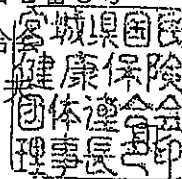 宮城県国民
健康保険
団体連合会
理事長之印